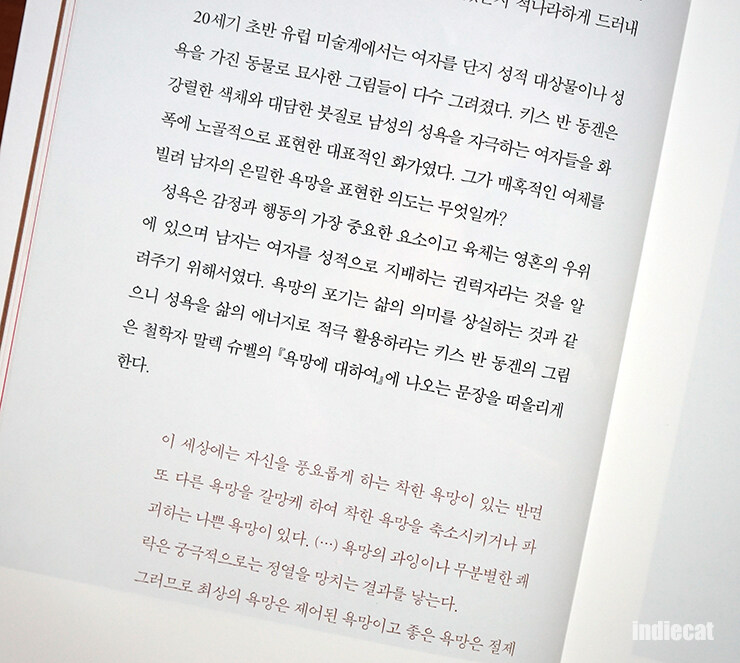 적나라하게 드러내
20세기 초반 유럽 미술계에서는 여자를 단지 성적 대상물이나 성
욕을 가진 동물로 묘사한 그림들이 다수 그려졌다. 키스 반 동겐은
강렬한 색채와 대담한 붓질로 남성의 성욕을 자극하는 여자들을 화
폭에 노골적으로 표현한 대표적인 화가였다. 그가 매혹적인 여체를
빌려 남자의 은밀한 욕망을 표현한 의도는 무엇일까?
성욕은 감정과 행동의 가장 중요한 요소이고 육체는 영혼의 우위
에 있으며 남자는 여자를 성적으로 지배하는 권력자라는 것을 알
려주기 위해서였다. 욕망의 포기는 삶의 의미를 상실하는 것과 같
으니 성욕을 삶의 에너지로 적극 활용하라는 키스 반 동겐의 그림
은 철학자 말렉 슈벨의 『욕망에 대하여』에 나오는 문장을 떠올리게
한다.
이 세상에는 자신을 풍요롭게 하는 착한 욕망이 있는 반면
또 다른 욕망을 갈망케 하여 착한 욕망을 축소시키거나 파
괴하는 나쁜 욕망이 있다. (…) 욕망의 과잉이나 무분별한 쾌
락은 궁극적으로는 정열을 망치는 결과를 낳는다.
그러므로 최상의 욕망은 제어된 욕망이고 좋은 욕망은 절제
indiecat